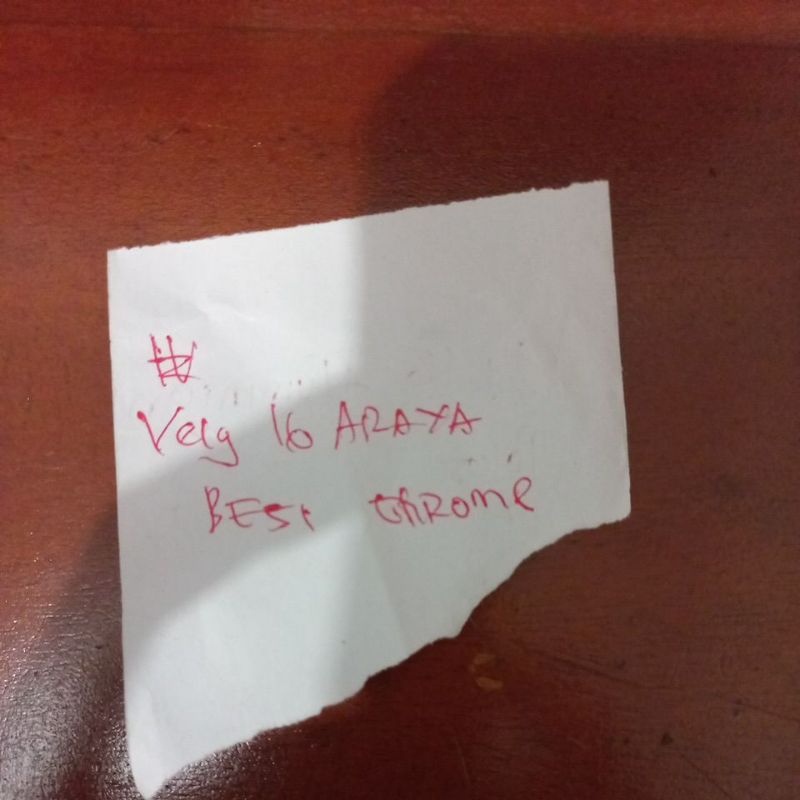 Velg 16 ARAYA
BESI CHROME